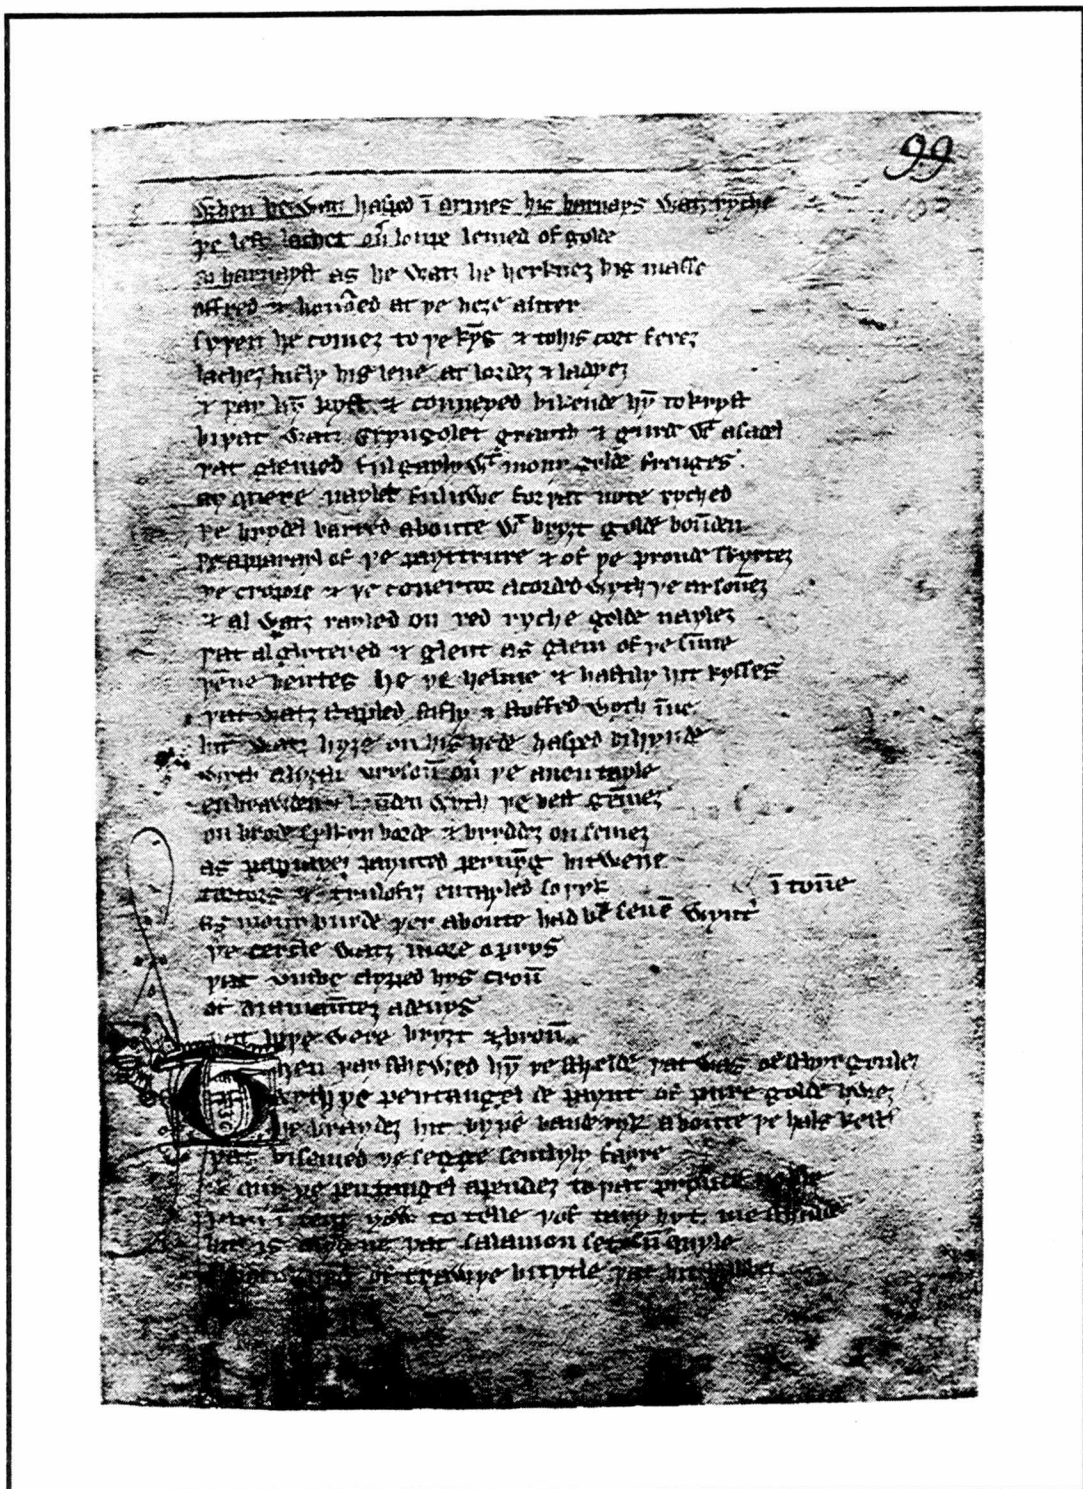 99
When he watz hasped ī armes his harnays watz ryche
þe lest lachet oū louþe lemed of golde
So harnayst as he watz he herknez his masse
offred & honoūed at þe heȝe auter
syþen he comez to þe kȳg & to his cort ferez
lachez lufly his leue at lordez & ladyez
& þay hȳ kyst & conueyed bikende hȳ to kryst
bi þat watz Gryngolet grayth & gurde wᵗ a sadel
þat glemed ful gayly wᵗ mony golde frenges
ay quere naylet ful nwe for þat note ryched
þe brydel barred aboute wᵗ bryȝt golde boūden
þe apparayl of þe payttrure & of þe proude skyrtez
þe cropore & þe couertor acorded wyth þe arsoūez
& al watz rayled on red ryche golde naylez
þat al glytered & glent as glem of þe sūne
þēne hentes he þe helme & hastily hit kysses
þat watz stapled stifly & stoffed wyth īne
hit watz hyȝe on his hede hasped bihynde
wyth a lyȝtli vrysoū oū þe auentayle
enbrawden & boūden wyth þe best gēmez
on brode sylkyn borde & bryddez on semez
as papiayez paynted pernȳg bitwene
tortors & trulofez entayled so þyk
as mony burde þer aboute had bē seuē wyntʼ
ī toūe
þe cercle watz more o prys
þat vmbe clypped hys croū
of diamaūtez a deuys
þat boþe were bryȝt & broū
Then þay schewed hȳ þe schelde þat was of schyr goulez
wyth þe pentangel de paynt of pure golde hwez
he braydez hit by þe bauderyk aboute þe hals kestes
þat bisemed þe segge semlyly fayre
& quy þe pentangel apendez to þat prynce noble
I am ī tent yow to telle þof tary hyt me schulde
hit is a syngne þat salamon set sūquyle
ī bytoknyng of trawþe bi tytle þat hit habbez